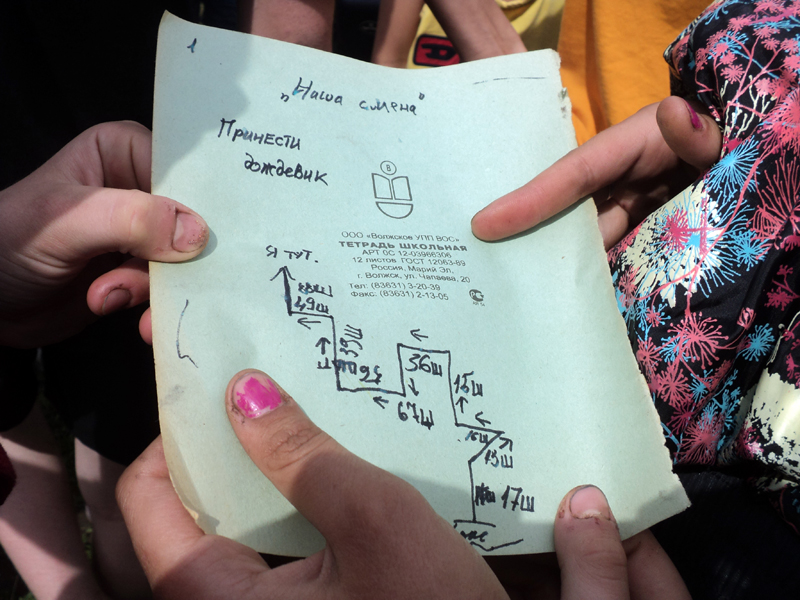 1
"Наша смена"
Принести
дождевик
В
ООО «Волжское УПП ВОС»
ТЕТРАДЬ ШКОЛЬНАЯ
АРТ ОС 12-03986306
12 листов ГОСТ 12063-89
Россия, Марий Эл,
г. Волжск, ул. Чапаева, 20
Тел: (83631) 3-20-39
Факс: (83631) 2-13-05
Я тут.
49ш
39ш
36ш
15ш
67ш
13ш
17ш